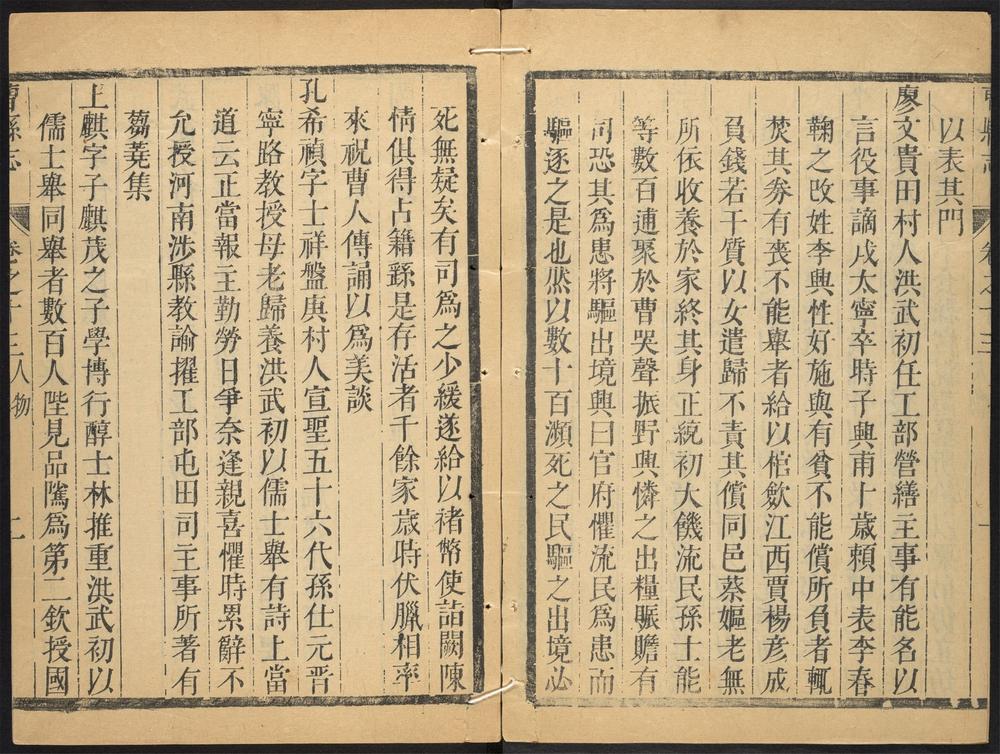 以表其門
廖文貴田村人洪武初任工部營繕主事有能名以
言役事謫戍大寧卒時子興甫十歲賴中表李春
鞠之改姓李興性好施與有貧不能償所負者輒
焚其券有喪不能舉者給以棺斂江西賈楊彥成
負錢若干質以女遣歸不責其償同邑蔡嫗老無
所依收養於家終其身正統初大饑流民孫士能
等數百逋聚於曹哭聲振野興憐之出糧賑贍有
司恐其爲患將驅出境興曰官府懼流民爲患而
驅逐之是也然以數十百瀕死之民驅之出境必
死無疑矣有司爲之少緩遂給以褚幣使詣闕陳
情俱得占籍繇是存活者千餘家歲時伏臘相率
來祝曹人傳誦以爲美談
孔希禎字士祥盤庚村人宣聖五十六代孫仕元晋
寧路教授母老歸養洪武初以儒士舉有詩上當
道云正當報主勤勞日爭奈逢親喜懼時累辭不
允授河南渉縣教諭擢工部屯田司主事所著有
蒭蕘集
王麒字子麒茂之子學博行醇士林推重洪武初以
儒士舉同舉者數百人陛見品隲爲第二欽授國
曹縣志 卷之十三 人物 二